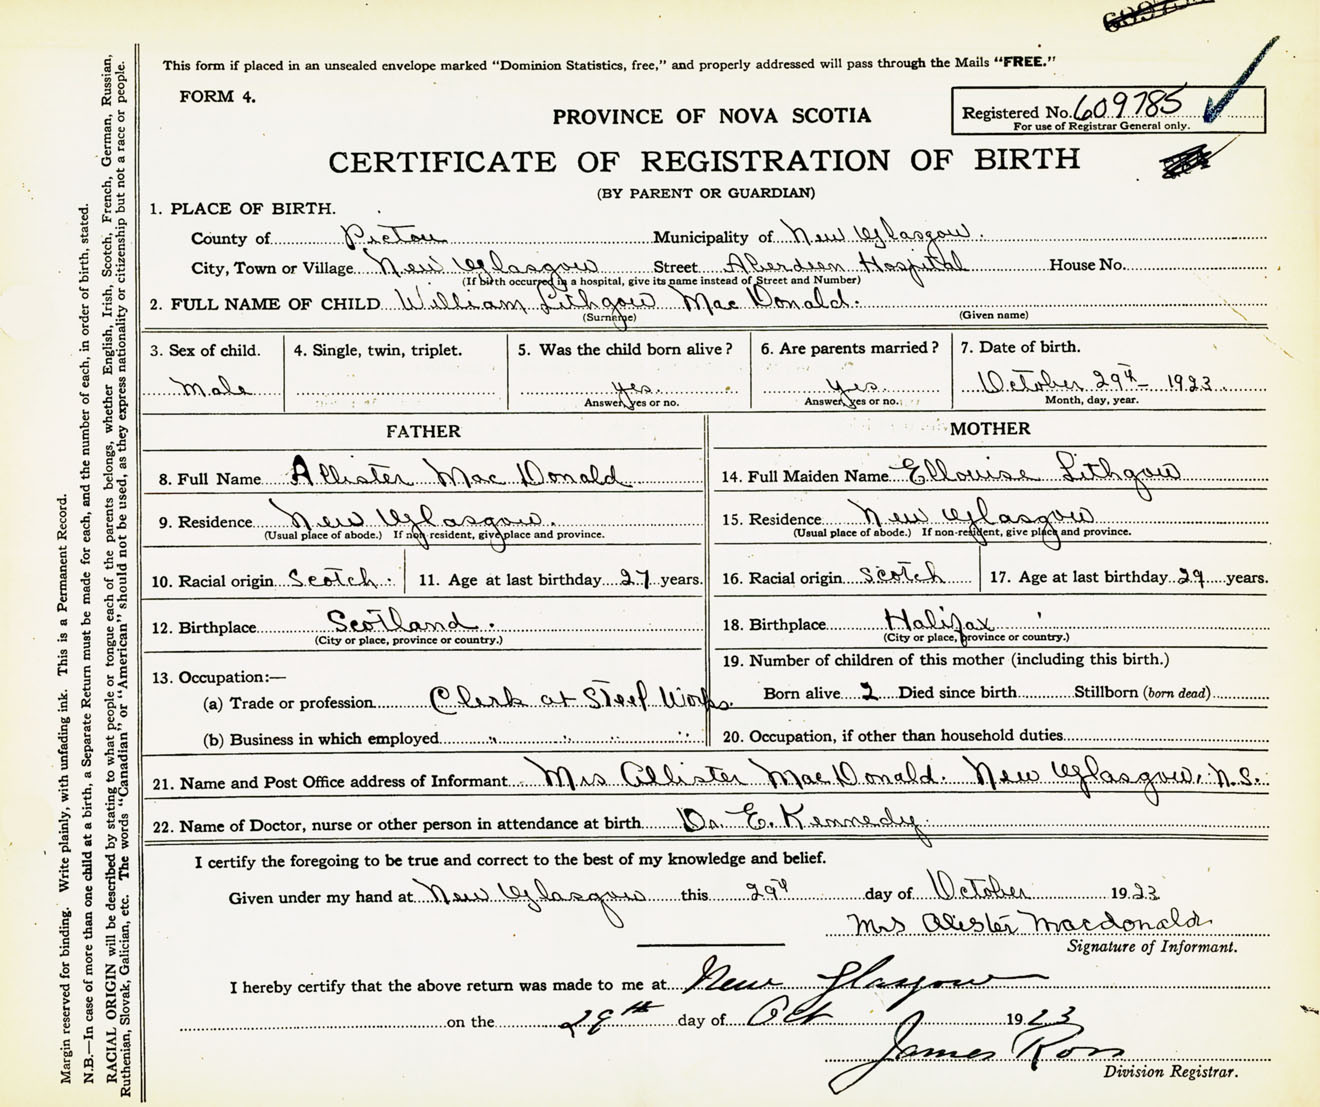 This form if placed in an unsealed envelope marked "Dominion Statistics, free," and properly addressed will pass through the Mails "FREE."
FORM 4.
PROVINCE OF NOVA SCOTIA
Registered No. 609785
For use of Registrar General only.
CERTIFICATE OF REGISTRATION OF BIRTH
(BY PARENT OR GUARDIAN)
1. PLACE OF BIRTH.
County of Pictou Municipality of New Glasgow.
City, Town or Village New Glasgow Street Aberdeen Hospital House No.
(If birth occurred in a hospital, give its name instead of Street and Number)
2. FULL NAME OF CHILD William Lithgow Mac Donald.
(Surname) (Given name)
3. Sex of child. 4. Single, twin, triplet. 5. Was the child born alive? 6. Are parents married? 7. Date of birth.
Male yes. yes. October 29th 1923
Answer, yes or no. Answer, yes or no. Month, day, year.
FATHER MOTHER
8. Full Name Allister Mac Donald 14. Full Maiden Name Ellouise Lithgow
9. Residence New Glasgow. 15. Residence New Glasgow
(Usual place of abode.) If non-resident, give place and province. (Usual place of abode.) If non-resident, give place and province.
10. Racial origin Scotch. 11. Age at last birthday 27 years. 16. Racial origin Scotch 17. Age at last birthday 29 years.
12. Birthplace Scotland. 18. Birthplace Halifax
(City or place, province or country.) (City or place, province or country.)
13. Occupation:— 19. Number of children of this mother (including this birth.)
(a) Trade or profession Clerk at Steel Works. Born alive 2 Died since birth Stillborn (born dead)
(b) Business in which employed " " " " 20. Occupation, if other than household duties
21. Name and Post Office address of Informant Mrs Allister MacDonald. New Glasgow, N.S.
22. Name of Doctor, nurse or other person in attendance at birth Dr. E. Kennedy.
I certify the foregoing to be true and correct to the best of my knowledge and belief.
Given under my hand at New Glasgow this 29th day of October 1923
Mrs Alister Macdonald
Signature of Informant.
I hereby certify that the above return was made to me at New Glasgow
on the 29th day of Oct 1923
James Ross
Division Registrar.
Margin reserved for binding. Write plainly, with unfading ink. This is a Permanent Record.
N.B.—In case of more than one child at a birth, a Separate Return must be made for each, and the number of each, in order of birth, stated.
RACIAL ORIGIN will be described by stating to what people or tongue each of the parents belongs, whether English, Irish, Scotch, French, German, Russian,
Ruthenian, Slovak, Galician, etc. The words "Canadian" or "American" should not be used, as they express nationality or citizenship but not a race or people.